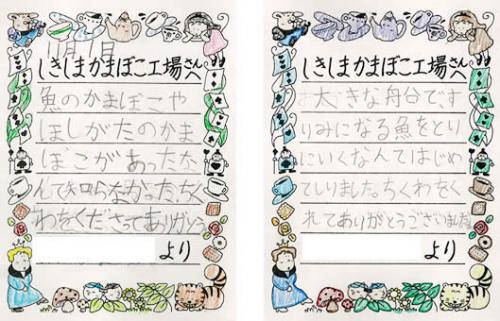 11月1日
しきしまかまぼこ工場さんへ
魚のかまぼこや
ほしがたのかま
ぼこがあったな
んて知らなかった。ちく
わをくださってありがとう。
より
しきしまかまぼこ工場さんへ
お大きな舟台です
りみになる魚をとり
にいくなんてはじめ
てしりました。ちくわをく
れてありがとうございました。
より